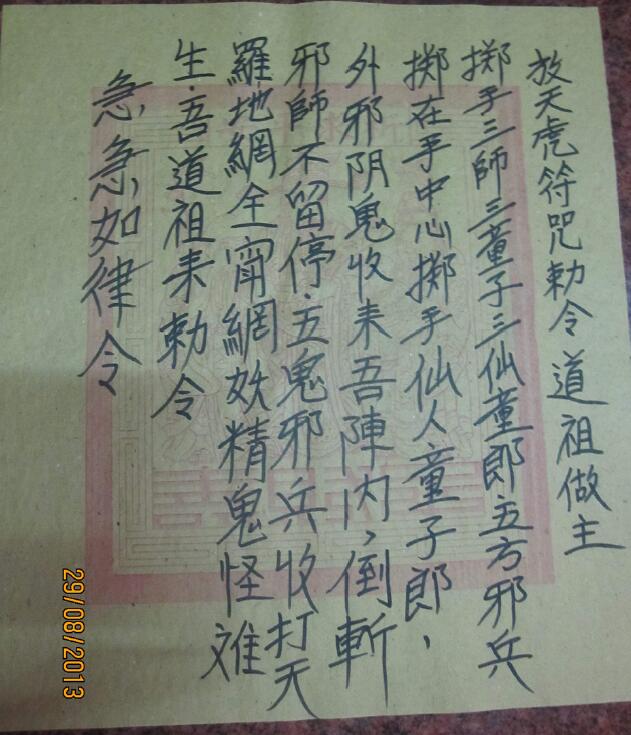 放天虎符咒勅令道祖做主
掷手三師三童子三仙童郎五方邪兵
掷在手中心掷手仙人童子郎，
外邪阴鬼收来吾陣内，倒斬
邪師不留停．五鬼邪兵收打天
羅地網全宵網妖精鬼怪难
生．吾道祖来勅令
急急如律令
29/08/2013